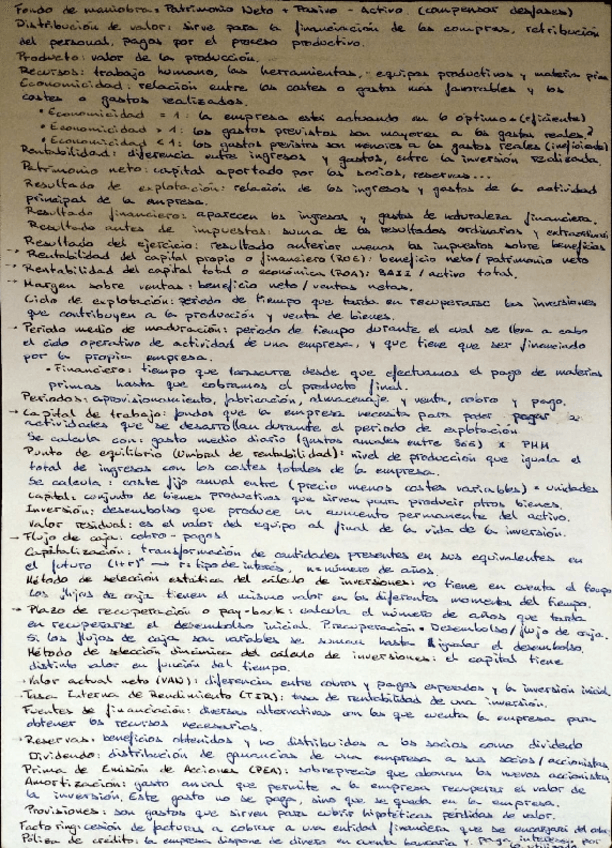 Fondo de maniobra: Patrimonio Neto + Pasivo - Activo. (compensar desfases)
Distribución de valor: sirve para la financiación de las compras, retribución
del personal, pagos por el proceso productivo.
Producto: valor de la producción.
Recursos: trabajo humano, las herramientas, equipos productivos y materia prima
Economicidad: relación entre los costes o gastos más favorables y los
costes o gastos realizados.
• Economicidad = 1: la empresa está actuando en lo óptimo (eficiente)
• Economicidad > 1: los gastos previstos son mayores a los gastos reales.
• Economicidad < 1: los gastos previstos son menores a los gastos reales (ineficiente)
Rentabilidad: diferencia entre ingresos y gastos, entre la inversión realizada.
Patrimonio neto: capital aportado por los socios, reservas...
Resultado de explotación: relación de los ingresos y gastos de la actividad
principal de la empresa.
Resultado financiero: aparecen los ingresos y gastos de naturaleza financiera.
Resultado antes de impuestos: suma de los resultados ordinarios y extraordinarios
Resultado del ejercicio: resultado anterior menos los impuestos sobre beneficios
→ Rentabilidad del capital propio o financiero (ROE): beneficio neto/patrimonio neto
→ Rentabilidad del capital total o económica (ROA): BAII/activo total.
→ Margen sobre ventas: beneficio neto/ventas netas.
Ciclo de explotación: periodo de tiempo que tarda en recuperarse las inversiones
que contribuyen a la producción y venta de bienes.
→ Periodo medio de maduración: periodo de tiempo durante el cual se lleva a cabo
el ciclo operativo de actividad de una empresa, y que tiene que ser financiado
por la propia empresa.
• Financiero: tiempo que transcurre desde que efectuamos el pago de materias
primas hasta que cobramos el producto final.
Periodos: aprovisionamiento, fabricación, almacenaje y venta, cobro y pago.
→ Capital de trabajo: fondos que la empresa necesita para poder pagar
actividades que se desarrollan durante el periodo de explotación
Se calcula con: gasto medio diario (gastos anuales entre 365) x PMM
Punto de equilibrio (Umbral de rentabilidad): nivel de producción que iguala el
total de ingresos con los costes totales de la empresa.
Se calcula: coste fijo anual entre (precio menos costes variables) = unidades
Capital: conjunto de bienes productivos que sirven para producir otros bienes.
Inversión: desembolso que produce un aumento permanente del activo.
Valor residual: es el valor del equipo al final de la vida de la inversión.
→ Flujo de caja: cobro - pagos
Capitalización: transformación de cantidades presentes en sus equivalentes en
el futuro (1+r)ⁿ → r = tipo de interés, n = número de años.
Método de selección estática del cálculo de inversiones: no tiene en cuenta el tiempo
Los flujos de caja tienen el mismo valor en los diferentes momentos del tiempo.
→ Plazo de recuperación o pay-back: calcula el número de años que tarda
en recuperarse el desembolso inicial. Precuperación = Desembolso/flujo de caja.
Si los flujos de caja son variables se suman hasta igualar el desembolso.
Método de selección dinámica del cálculo de inversiones: el capital tiene
distinto valor en función del tiempo.
• Valor actual neto (VAN): diferencia entre cobros y pagos esperados y la inversión inicial
• Tasa Interna de Rendimiento (TIR): tasa de rentabilidad de una inversión.
Fuentes de financiación: diversas alternativas con las que cuenta la empresa para
obtener los recursos necesarios.
• Reservas: beneficios obtenidos y no distribuidos a los socios como dividendo
Dividendo: distribución de ganancias de una empresa a sus socios/accionistas
Prima de Emisión de Acciones (PEA): sobreprecio que abonan los nuevos accionistas
Amortización: gasto anual que permite a la empresa recuperar el valor de
la inversión. Este gasto no se paga, sino que se queda en la empresa.
Provisiones: son gastos que sirven para cubrir hipotéticas pérdidas de valor.
Factoring: cesión de facturas a cobrar a una entidad financiera que se encargará del
Póliza de crédito: la empresa dispone de dinero en cuenta bancaria y paga intereses por